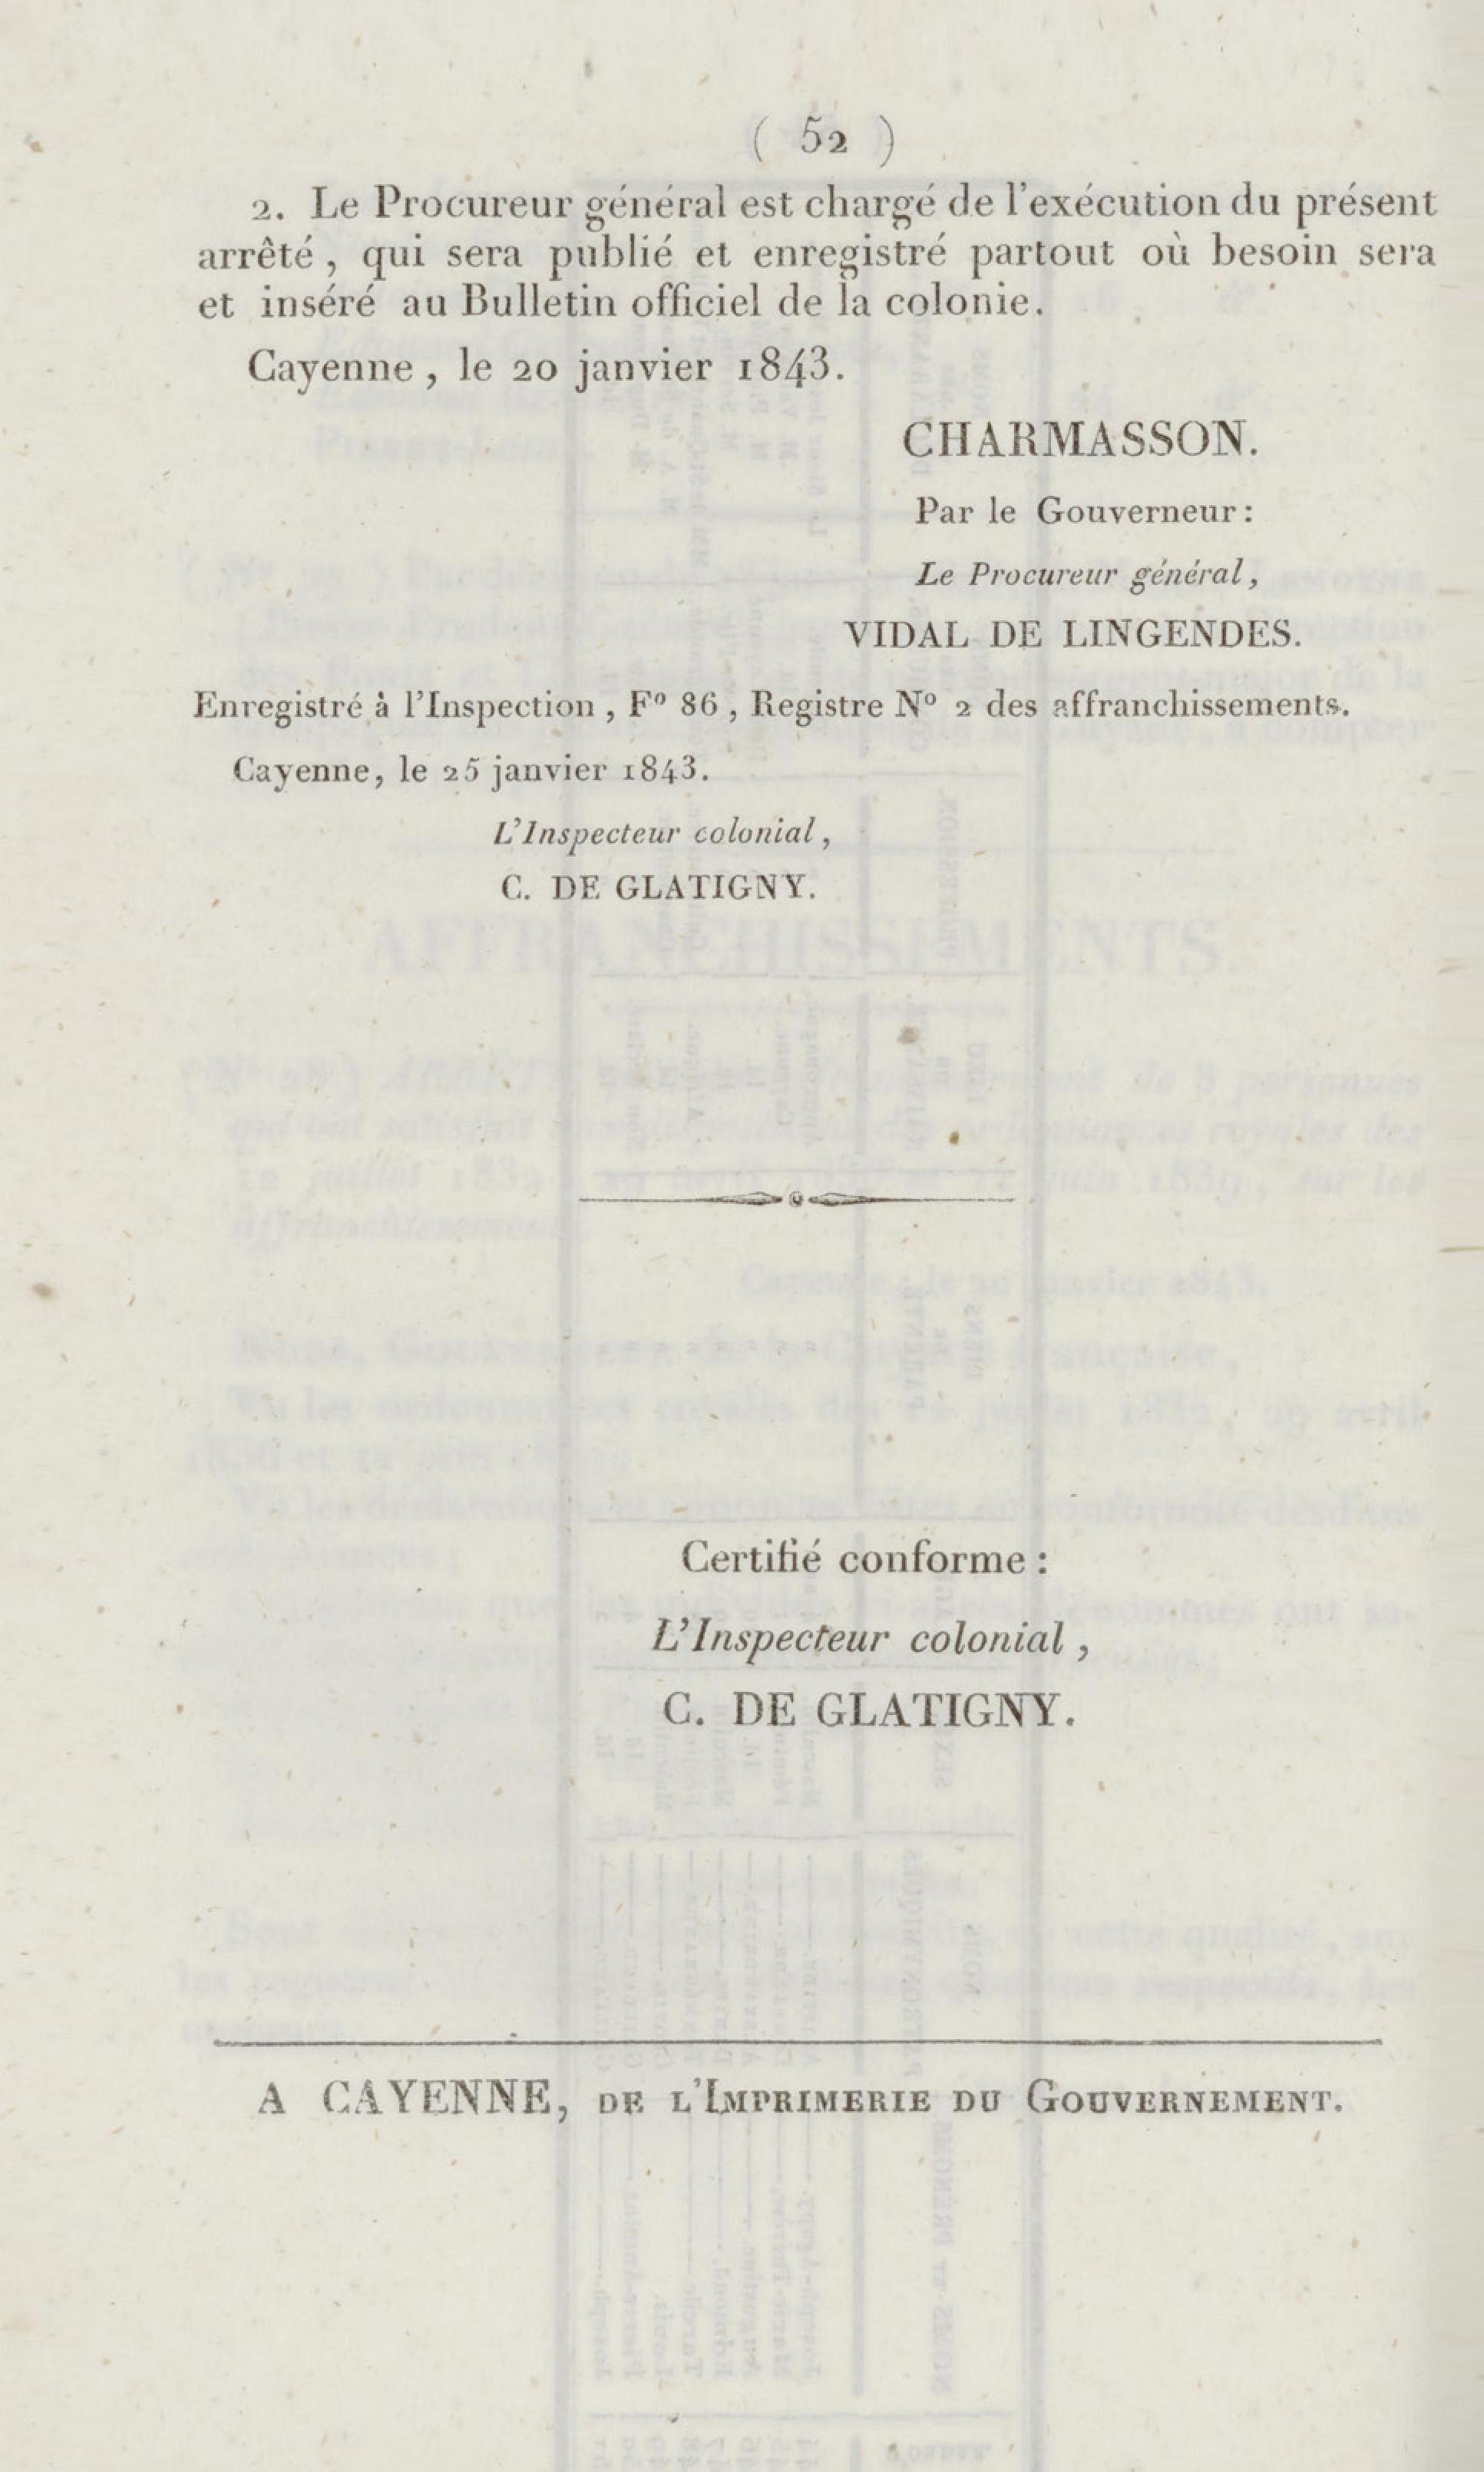 ( 52 )
2. Le Procureur général est chargé de l'exécution du présent
arrêté, qui sera publié et enregistré partout où besoin sera
et inséré au Bulletin officiel de la colonie.
Cayenne, le 20 janvier 1843.
CHARMASSON.
Par le Gouverneur:
Le Procureur général,
VIDAL DE LINGENDES.
Enregistré à l'Inspection, Fº 86, Registre Nº 2 des affranchissements.
Cayenne, le 25 janvier 1843.
L'Inspecteur colonial,
C. DE GLATIGNY.
Certifié conforme:
L'Inspecteur colonial,
C. DE GLATIGNY.
A CAYENNE, DE L'IMPRIMERIE DU GOUVERNEMENT.